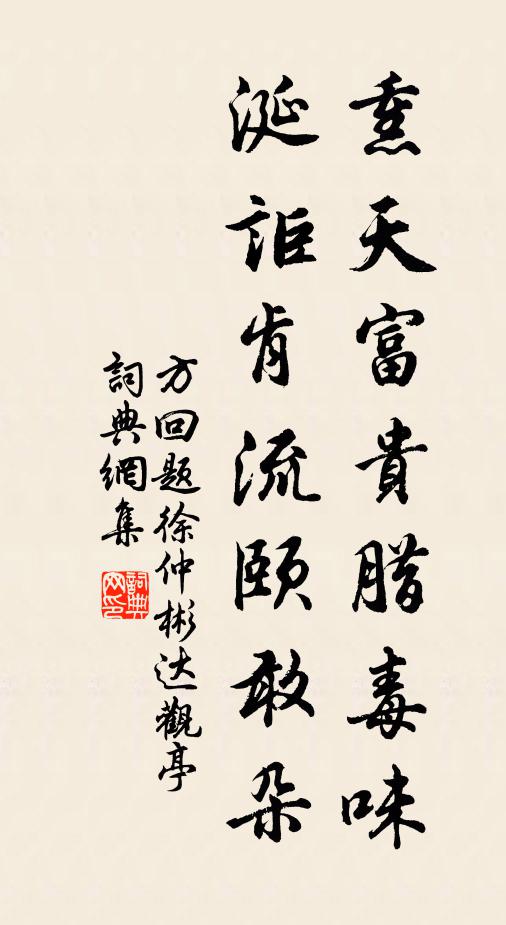 熏天富貴腊毒味
涎詎肯流頤敢朵
方回題徐仲彬达觀亭
詞典網集
詞典网印